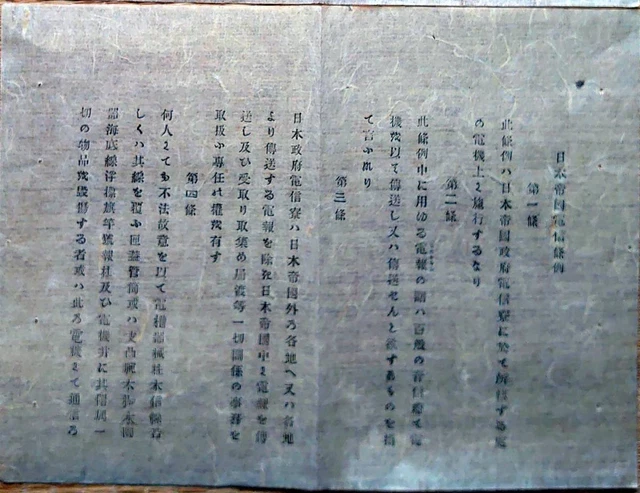 日本帝國電信條例
第一條
此條例ハ日本帝國政府電信寮に於て所轄する
の電機上に施行するなり
第二條
此條例中に用ゆる電報の語ハ百般の音信總て電
機を以て傳送し又ハ傳送せんと欲するものを指
て言ふなり
第三條
日本政府電信寮ハ日本帝國外の各地へ又ハ各地
より傳送する電報を除き日本帝國中に電報を傳
送し及び受取り取集め届渡等一切關係の事務を
取扱ふ專任の權を有す
第四條
何人とても不法故意を以て電機
しくハ其線を覆ふ
海底線浮標旗竿號報柱及び電機并に其附屬一
切の物品を毀傷する者或ハ此る電機にて通信